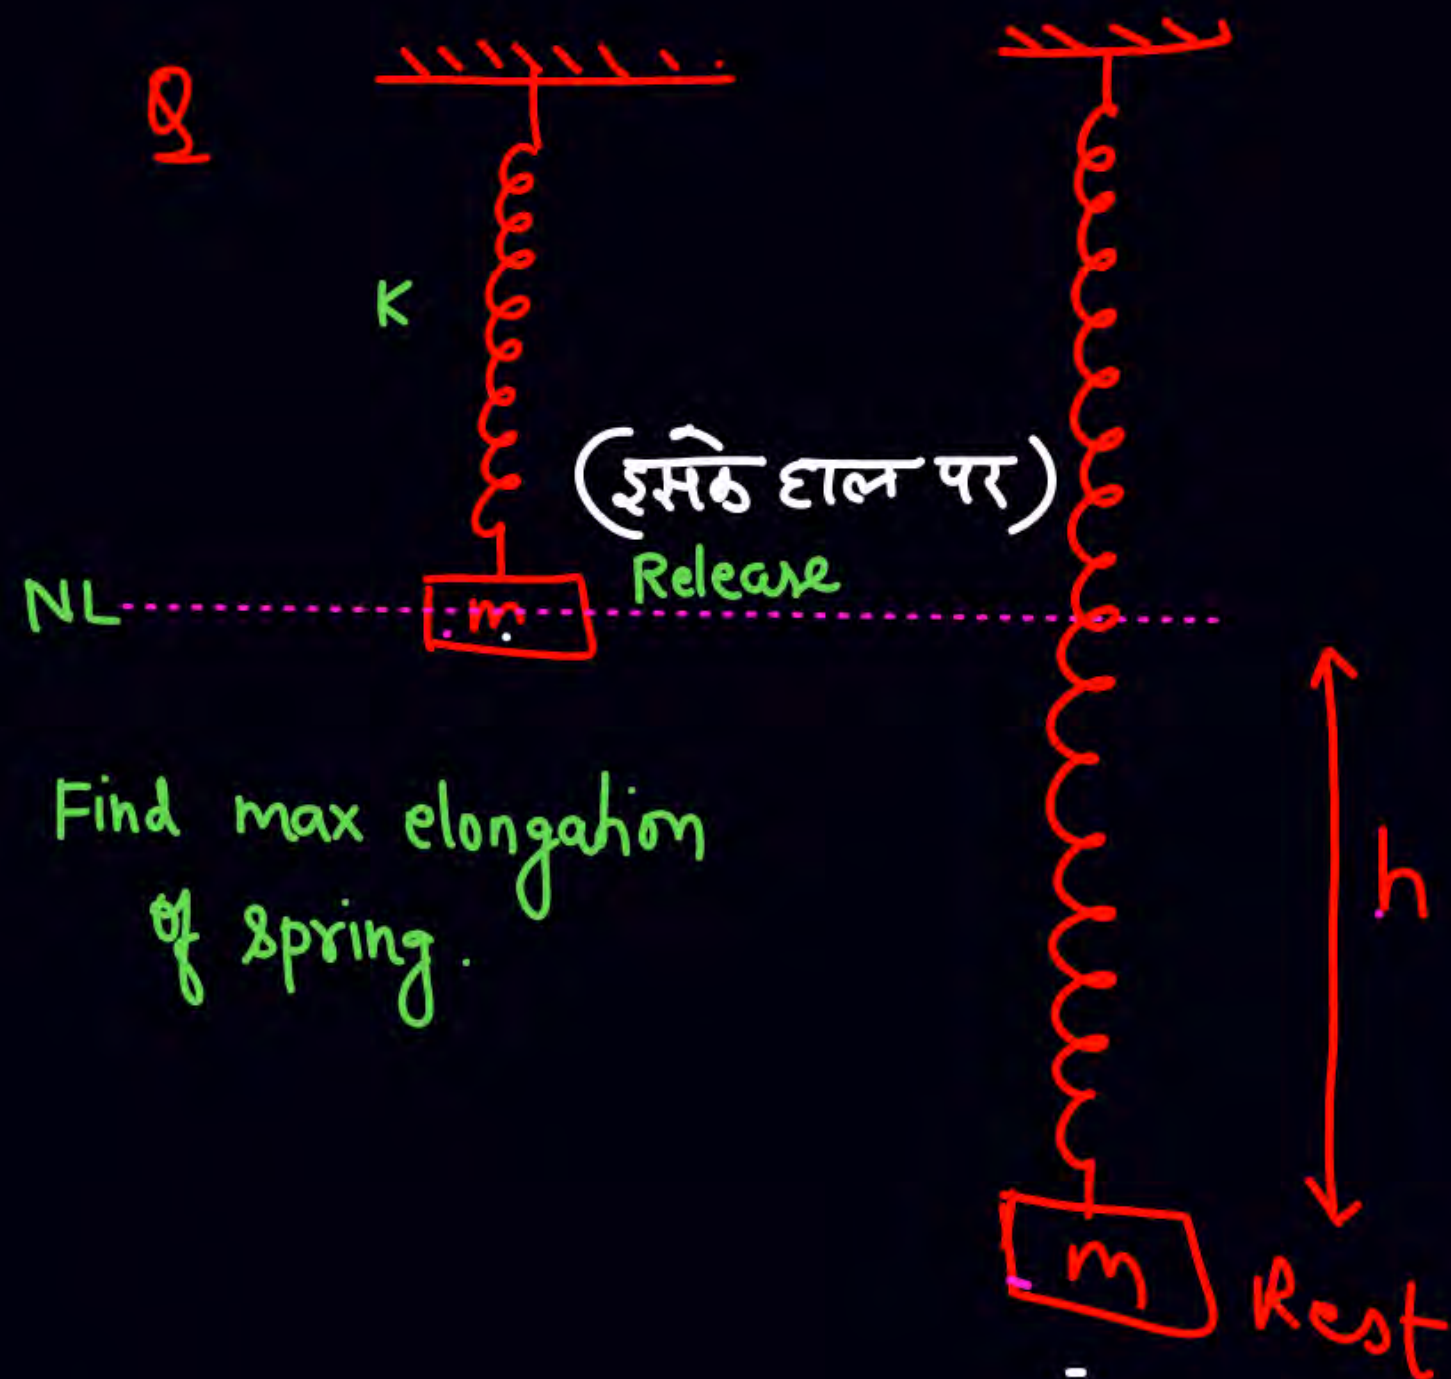 Q
K
(इसके हाल पर)
Release
NL
m
Find max elongation
of spring.
h
m
Rest